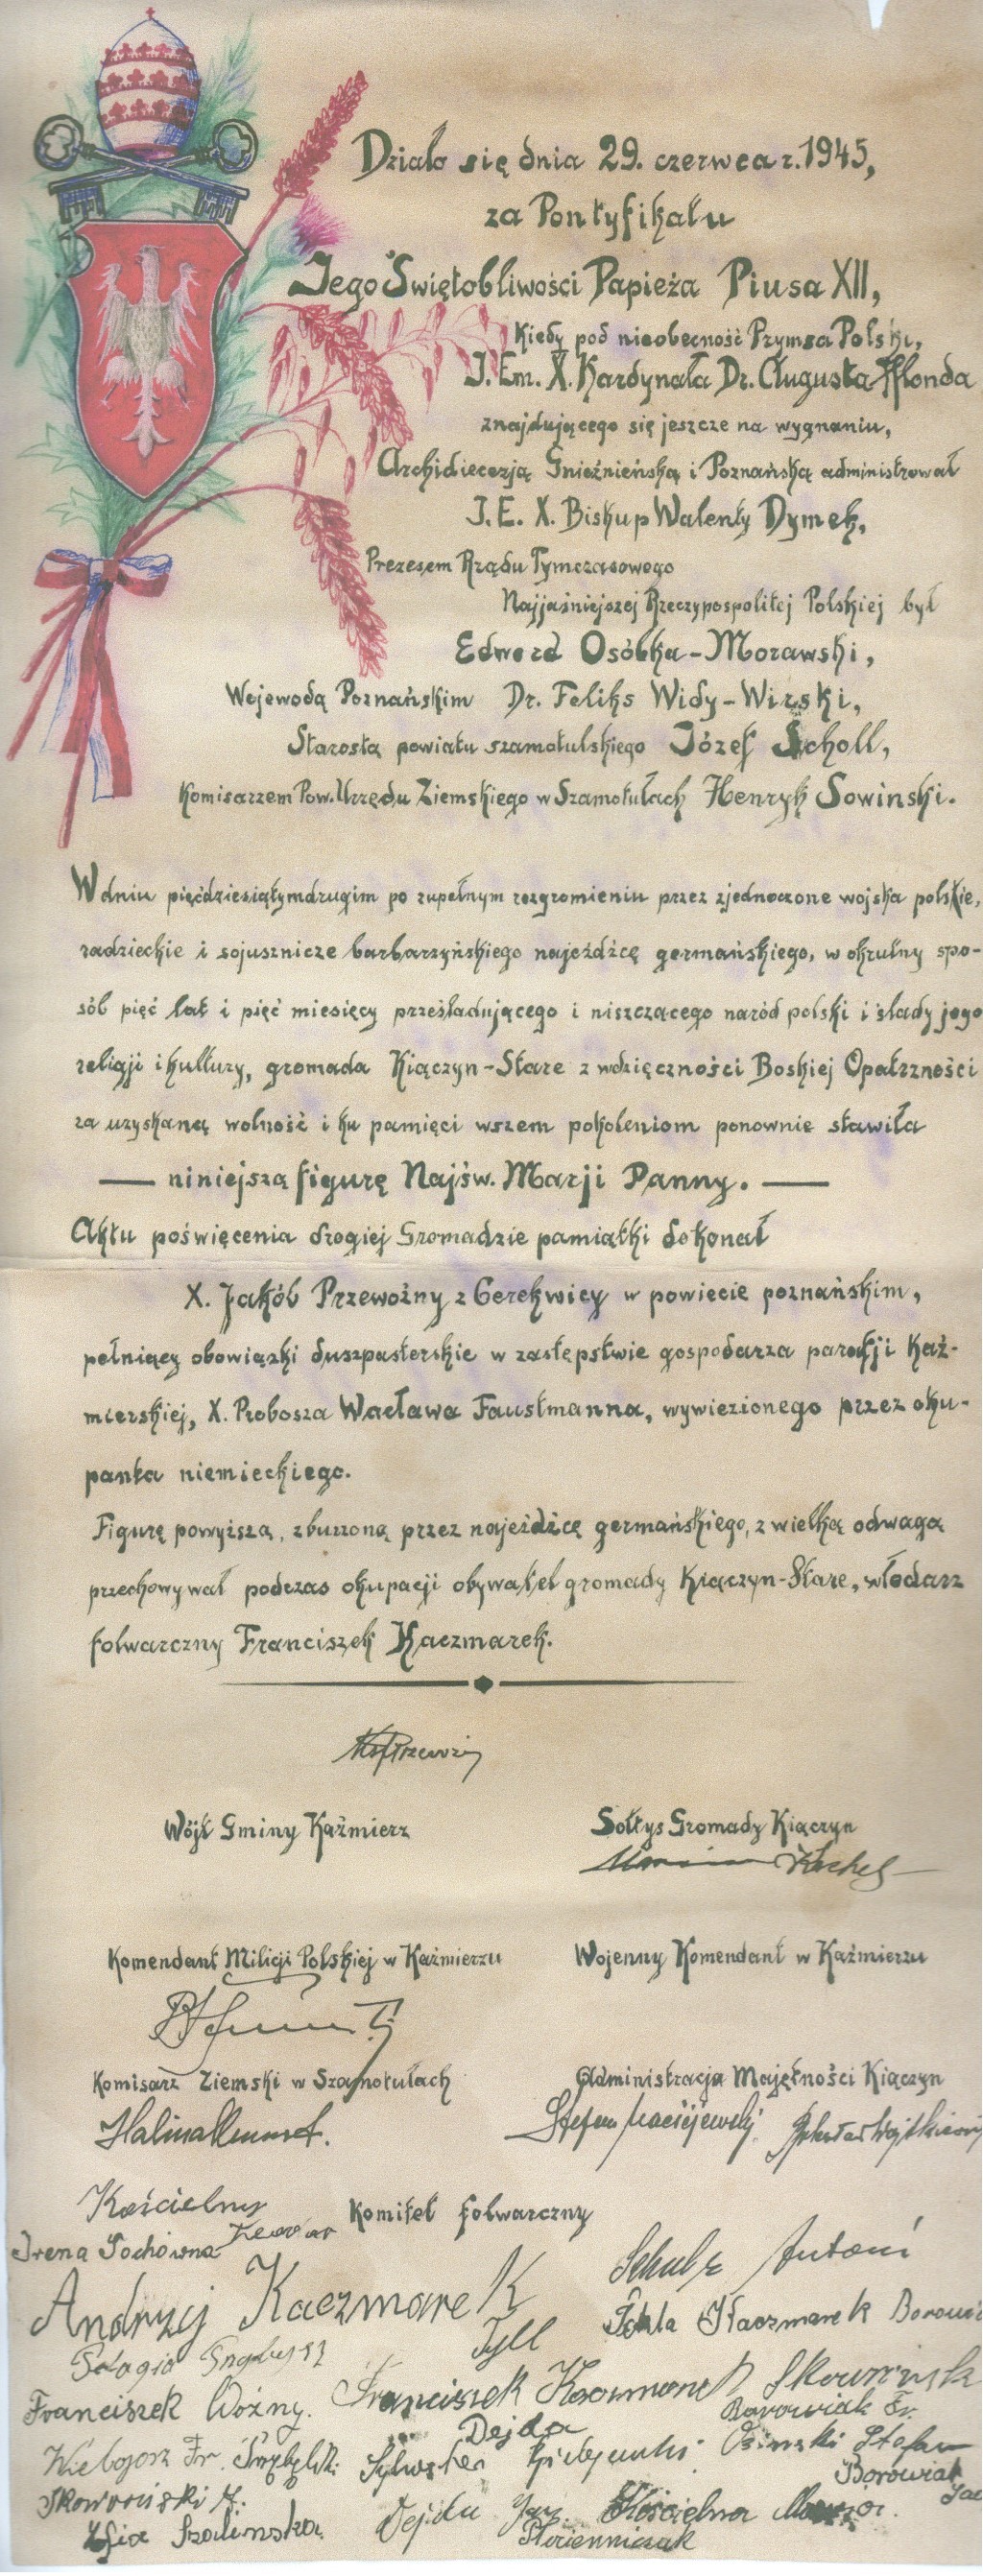 Działo się dnia 29. czerwca r. 1945,
za Pontyfikatu
Jego Świętobliwości Papieża Piusa XII,
Kiedy pod nieobecność Prymsa Polski,
J. Em. X. Kardynała Dr. Augusta Hlonda
znajdującego się jeszcze na wygnaniu,
Archidiecezją Gnieźnieńską i Poznańską administrował
J. E. X. Biskup Walenty Dymek,
Prezesem Rządu Tymczasowego
Najjaśniejszej Rzeczypospolitej Polskiej był
Edward Osóbka-Morawski,
Wojewodą Poznańskim Dr. Feliks Widy-Wirski,
Starostą powiatu szamotulskiego Józef Scholl,
Komisarzem Pow. Urzędu Ziemskiego w Szamotułach Henryk Sowinski.
W dniu pięćdziesiątymdrugim po zupełnym rozgromieniu przez zjednoczone wojska polskie,
radzieckie i sojusznicze barbarzyńskiego najeźdźcę germańskiego, w okrutny spo-
sób pięć lat i pięć miesięcy prześladującego i niszczącego naród polski i ślady jego
religji i kultury, gromada Kiączyn-Stare z wdzięczności Boskiej Opatrzności
za uzyskaną wolność i ku pamięci wszem pokoleniom ponownie stawiła
— niniejszą figurę Najśw. Marji Panny. —
Aktu poświęcenia drogiej Gromadzie pamiątki dokonał
X. Jakób Przewoźny z Cerekwicy w powiecie poznańskim,
pełniący obowiązki duszpasterskie w zastępstwie gospodarza parafji Kaź-
mierskiej, X. Probosza Wacława Faustmanna, wywiezionego przez oku-
panta niemieckiego.
Figurę powyższą, zburzoną przez najeźdźcę germańskiego, z wielką odwagą
przechowywał podczas okupacji obywatel gromady Kiączyn-Stare, włodarz
folwarczny Franciszek Kaczmarek.
Wójt Gminy Kaźmierz
Sołtys Gromady Kiączyn
Komendant Milicji Polskiej w Kaźmierzu
Wojenny Komendant w Kaźmierzu
Komisarz Ziemski w Szamotułach
Administracja Majętności Kiączyn
Stefan Maciejewski
Kościelny
Komitet folwarczny
Irena Sochówna
Schulz Antoni
Andrzej Kaczmarek
Kaczmarek
Tyll
Franciszek Woźny.
Franciszek Kaczmarek
Borowiak Fr.
Dejda
Stefan
Borowiak
Skowroński
Zofia Szalinska
Kościelna